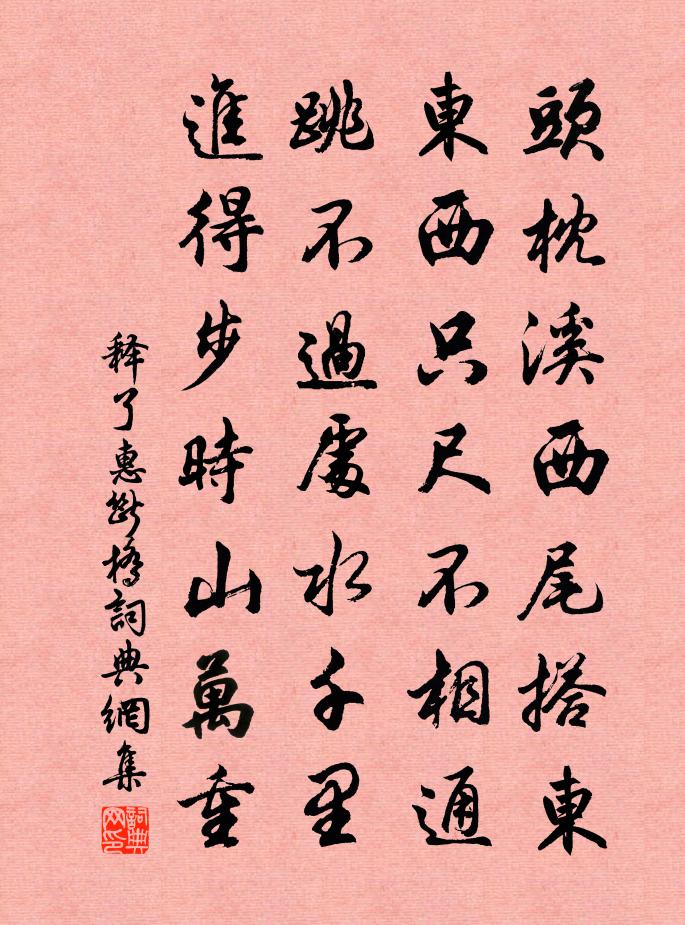 頭枕溪西尾搭東
東西只尺不相通
跳不過處水千里
進得步時山萬重
释了惠斷橋詞典網集
詞典網印